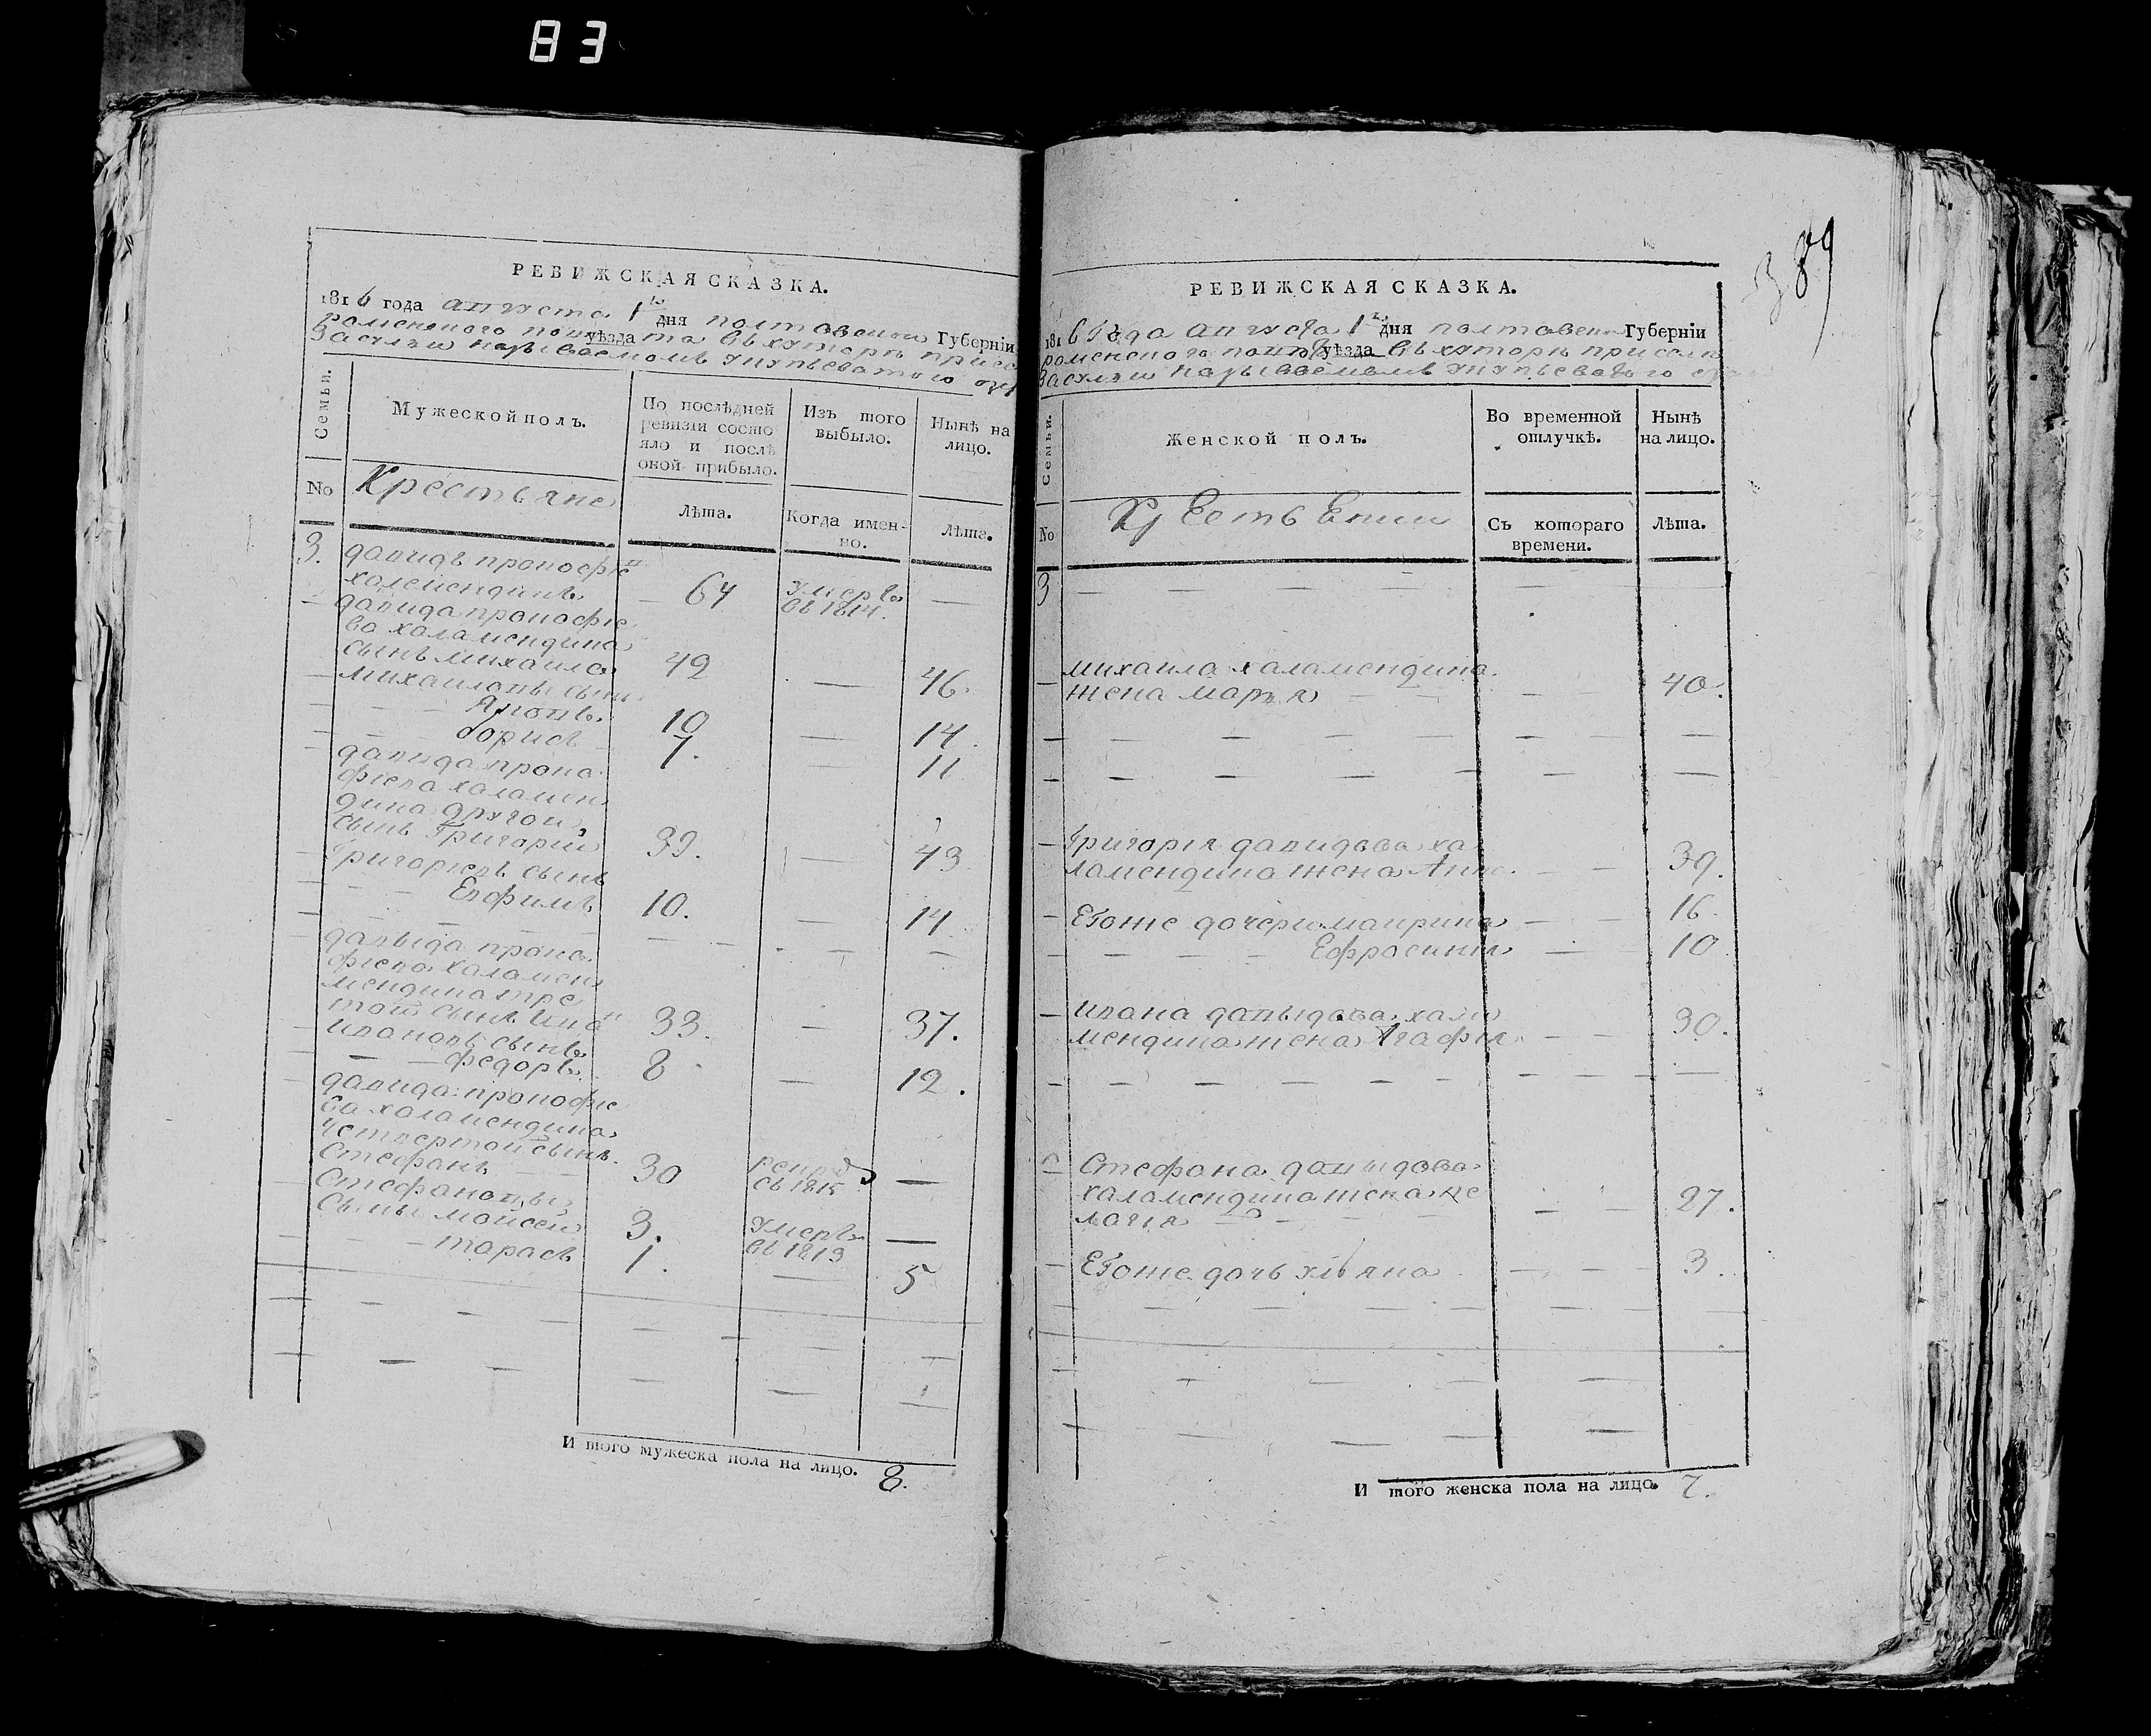 83
РЕВИЖСКАЯ СКАЗКА.
1816 года августа 1 дня полтавской Губерніи
роменского повета уѣзда въ хуторѣ
Засулли называемомъ
Семьи.
Мужеской полъ.
По послѣдней ревизіи состояло и послѣ оной прибыло.
Изъ того выбыло.
Нынѣ на лицо.
No
Крестьяне
Лѣта.
Когда именно.
Лѣта.
3. давидъ прокофіевъ
халамендикъ 64 умеръ въ 1814. —
давида прокофіе
ва халамендика
сынъ михаила 42 — 46.
михайловы сыны
Яковъ 10 — 14.
борисъ 7. — 11
давида проко
фіева халамен
дика другой
сынъ Григорій 39. — 43
Григоріевъ сынъ
Евфимъ 10. — 14
давыда проко
фіева халамен
мендика тре
той сынъ Иванъ 33. — 37.
ивановъ сынъ
федоръ 8 — 12.
давида прокофіе
ва халамендика
четвертой сынъ
Стефанъ 30 въ 1815 —
Стефановы
сыны мойсей 3. умеръ въ 1813 —
тарасъ 1. — 5
И того мужеска пола на лицо. 8.
389
РЕВИЖСКАЯ СКАЗКА.
1816 года августа 1 дня полтавской Губерніи
роменского повета уѣзда въ хуторѣ при селѣ
Засулли называемомъ
Семьи.
Женской полъ.
Во временной отлучкѣ.
Нынѣ на лицо.
No
Съ котораго времени.
Лѣта.
3
михаила халамендика
жена марья 40.
Григорія давидова ха
ламендика жена Анна 39.
Егоже дочери маврина 16.
Ефросинія 10
ивана давыдова хала
мендика жена Агафія 30.
Стефана давыдова
халамендика жена пе
лагія 27.
Егоже дочь ульяна 3.
И того женска пола на лицо. 7.